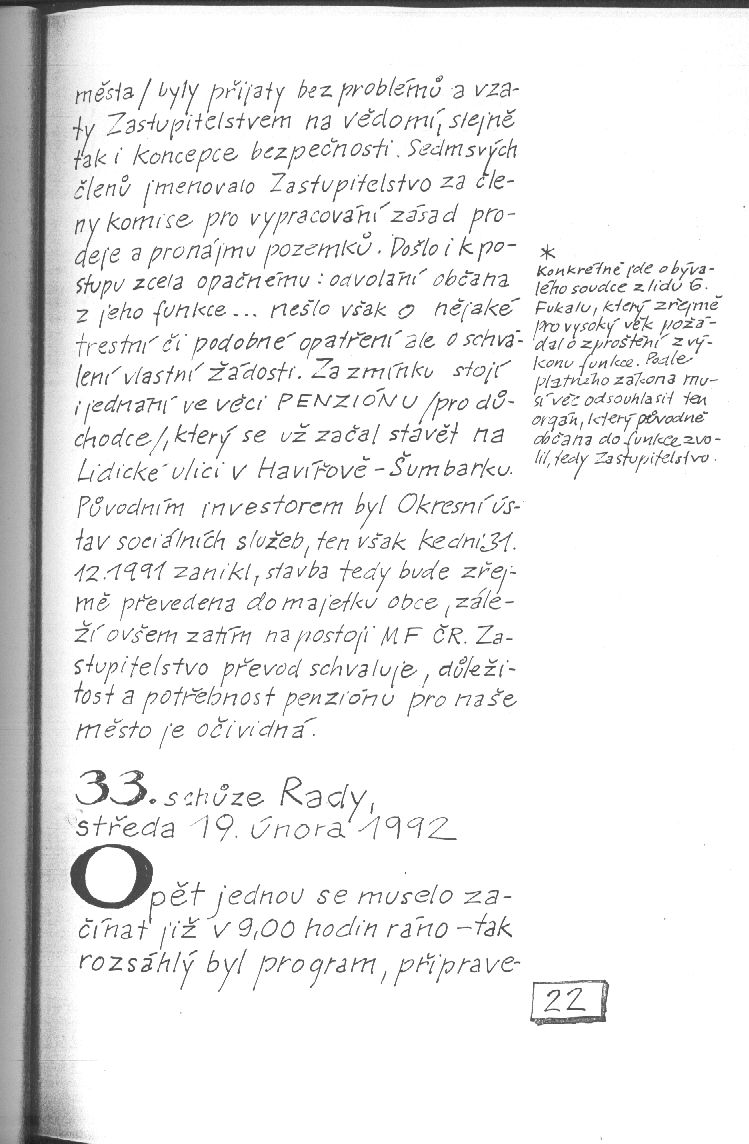 města/ byly přijaty bez problémů a vza-
ty Zastupitelstvem na vědomí, stejně
tak i koncepce bezpečnosti. Sedm svých
členů jmenovalo Zastupitelstvo za čle-
ny komise pro vypracování zásad pro-
deje a pronájmu pozemků. Došlo i k po-
stupu zcela opačnému: odvolání občana
z jeho funkce... nešlo však o nějaké
trestní či podobné opatření ale o schvá-
lení vlastní žádosti. Za zmínku stojí
i jednání ve věci PENZIÓNU /pro dů-
chodce/, který se už začal stavět na
Lidické ulici v Havířově-Šumbarku.
Původním investorem byl Okresní ús-
tav sociálních služeb, ten však ke dni 31.
12.1991 zanikl, stavba tedy bude zřej-
mě převedena do majetku obce, zále-
ží ovšem zatím na postoji MF ČR. Za-
stupitelstvo převod schvaluje, důleži-
tost a potřebnost penziónu pro naše
město je očividná.
*
Konkrétně jde o býva-
lého soudce z lidu G.
Fukalu, který zřejmě
pro vysoký věk požá-
dal o zproštění z vý-
konu funkce. Podle
platného zákona mu-
sí věc odsouhlasit ten
orgán, který původně
občana do funkce zvo-
lil, tedy Zastupitelstvo.
33. schůze Rady,
středa 19. února 1992
Opět jednou se muselo za-
čínat již v 9,00 hodin ráno - tak
rozsáhlý byl program, připrave-
22